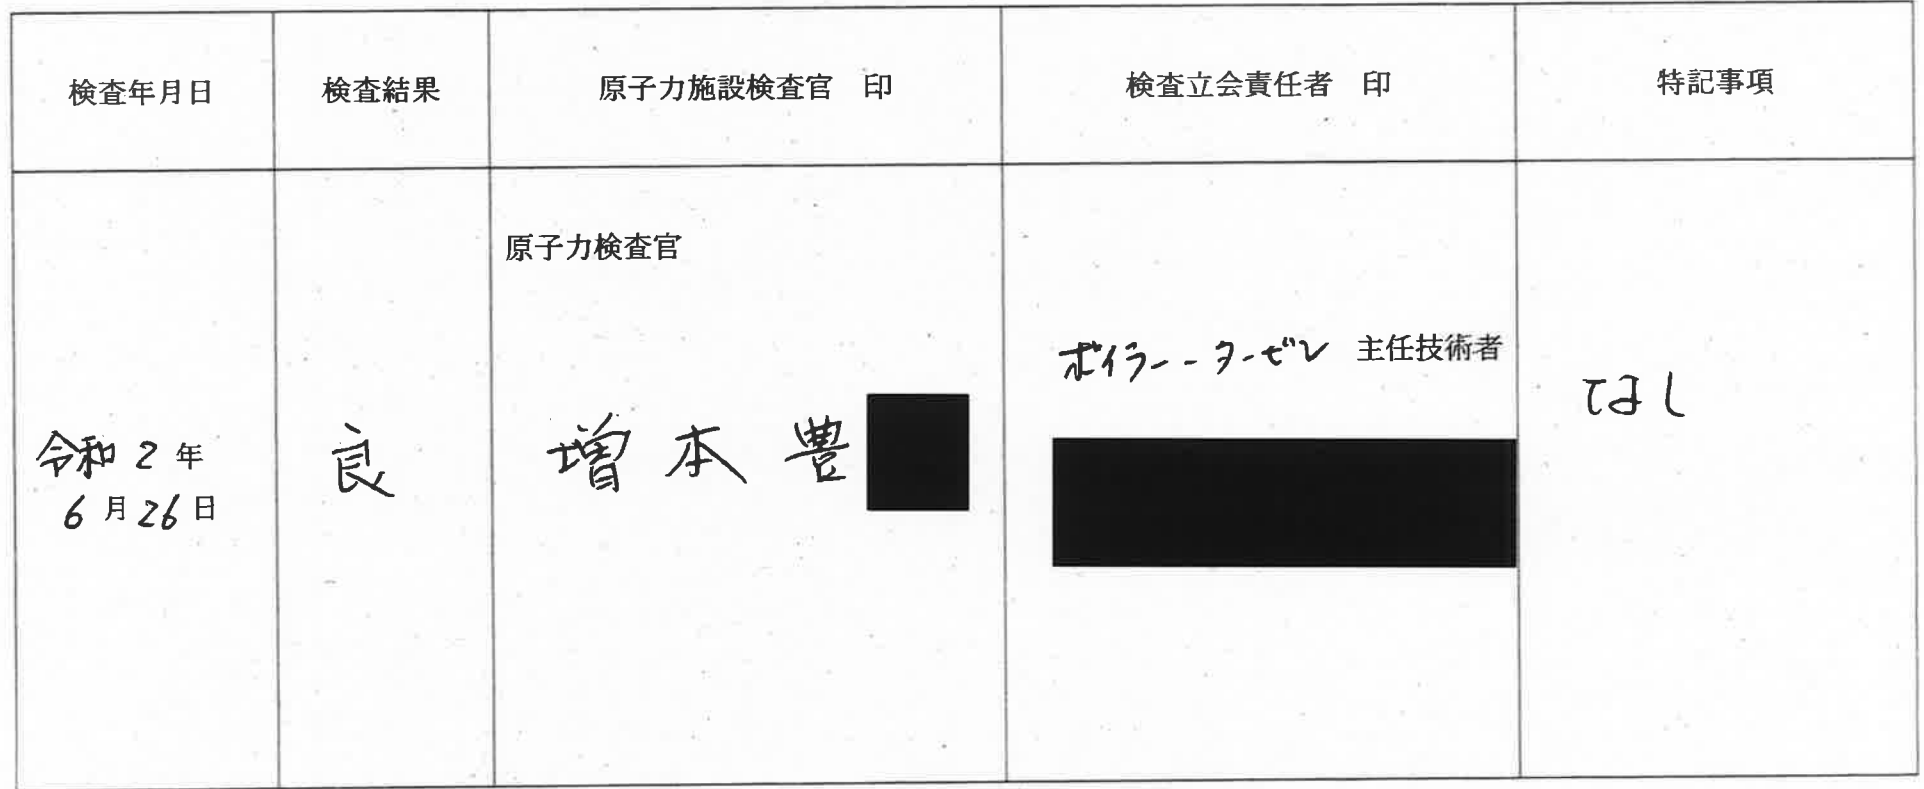 検査年月日
検査結果
原子力施設検査官 印
検査立会責任者 印
特記事項
令和2年
6月26日
良
原子力検査官
増本 豊
ボイラー・タービン 主任技術者
なし